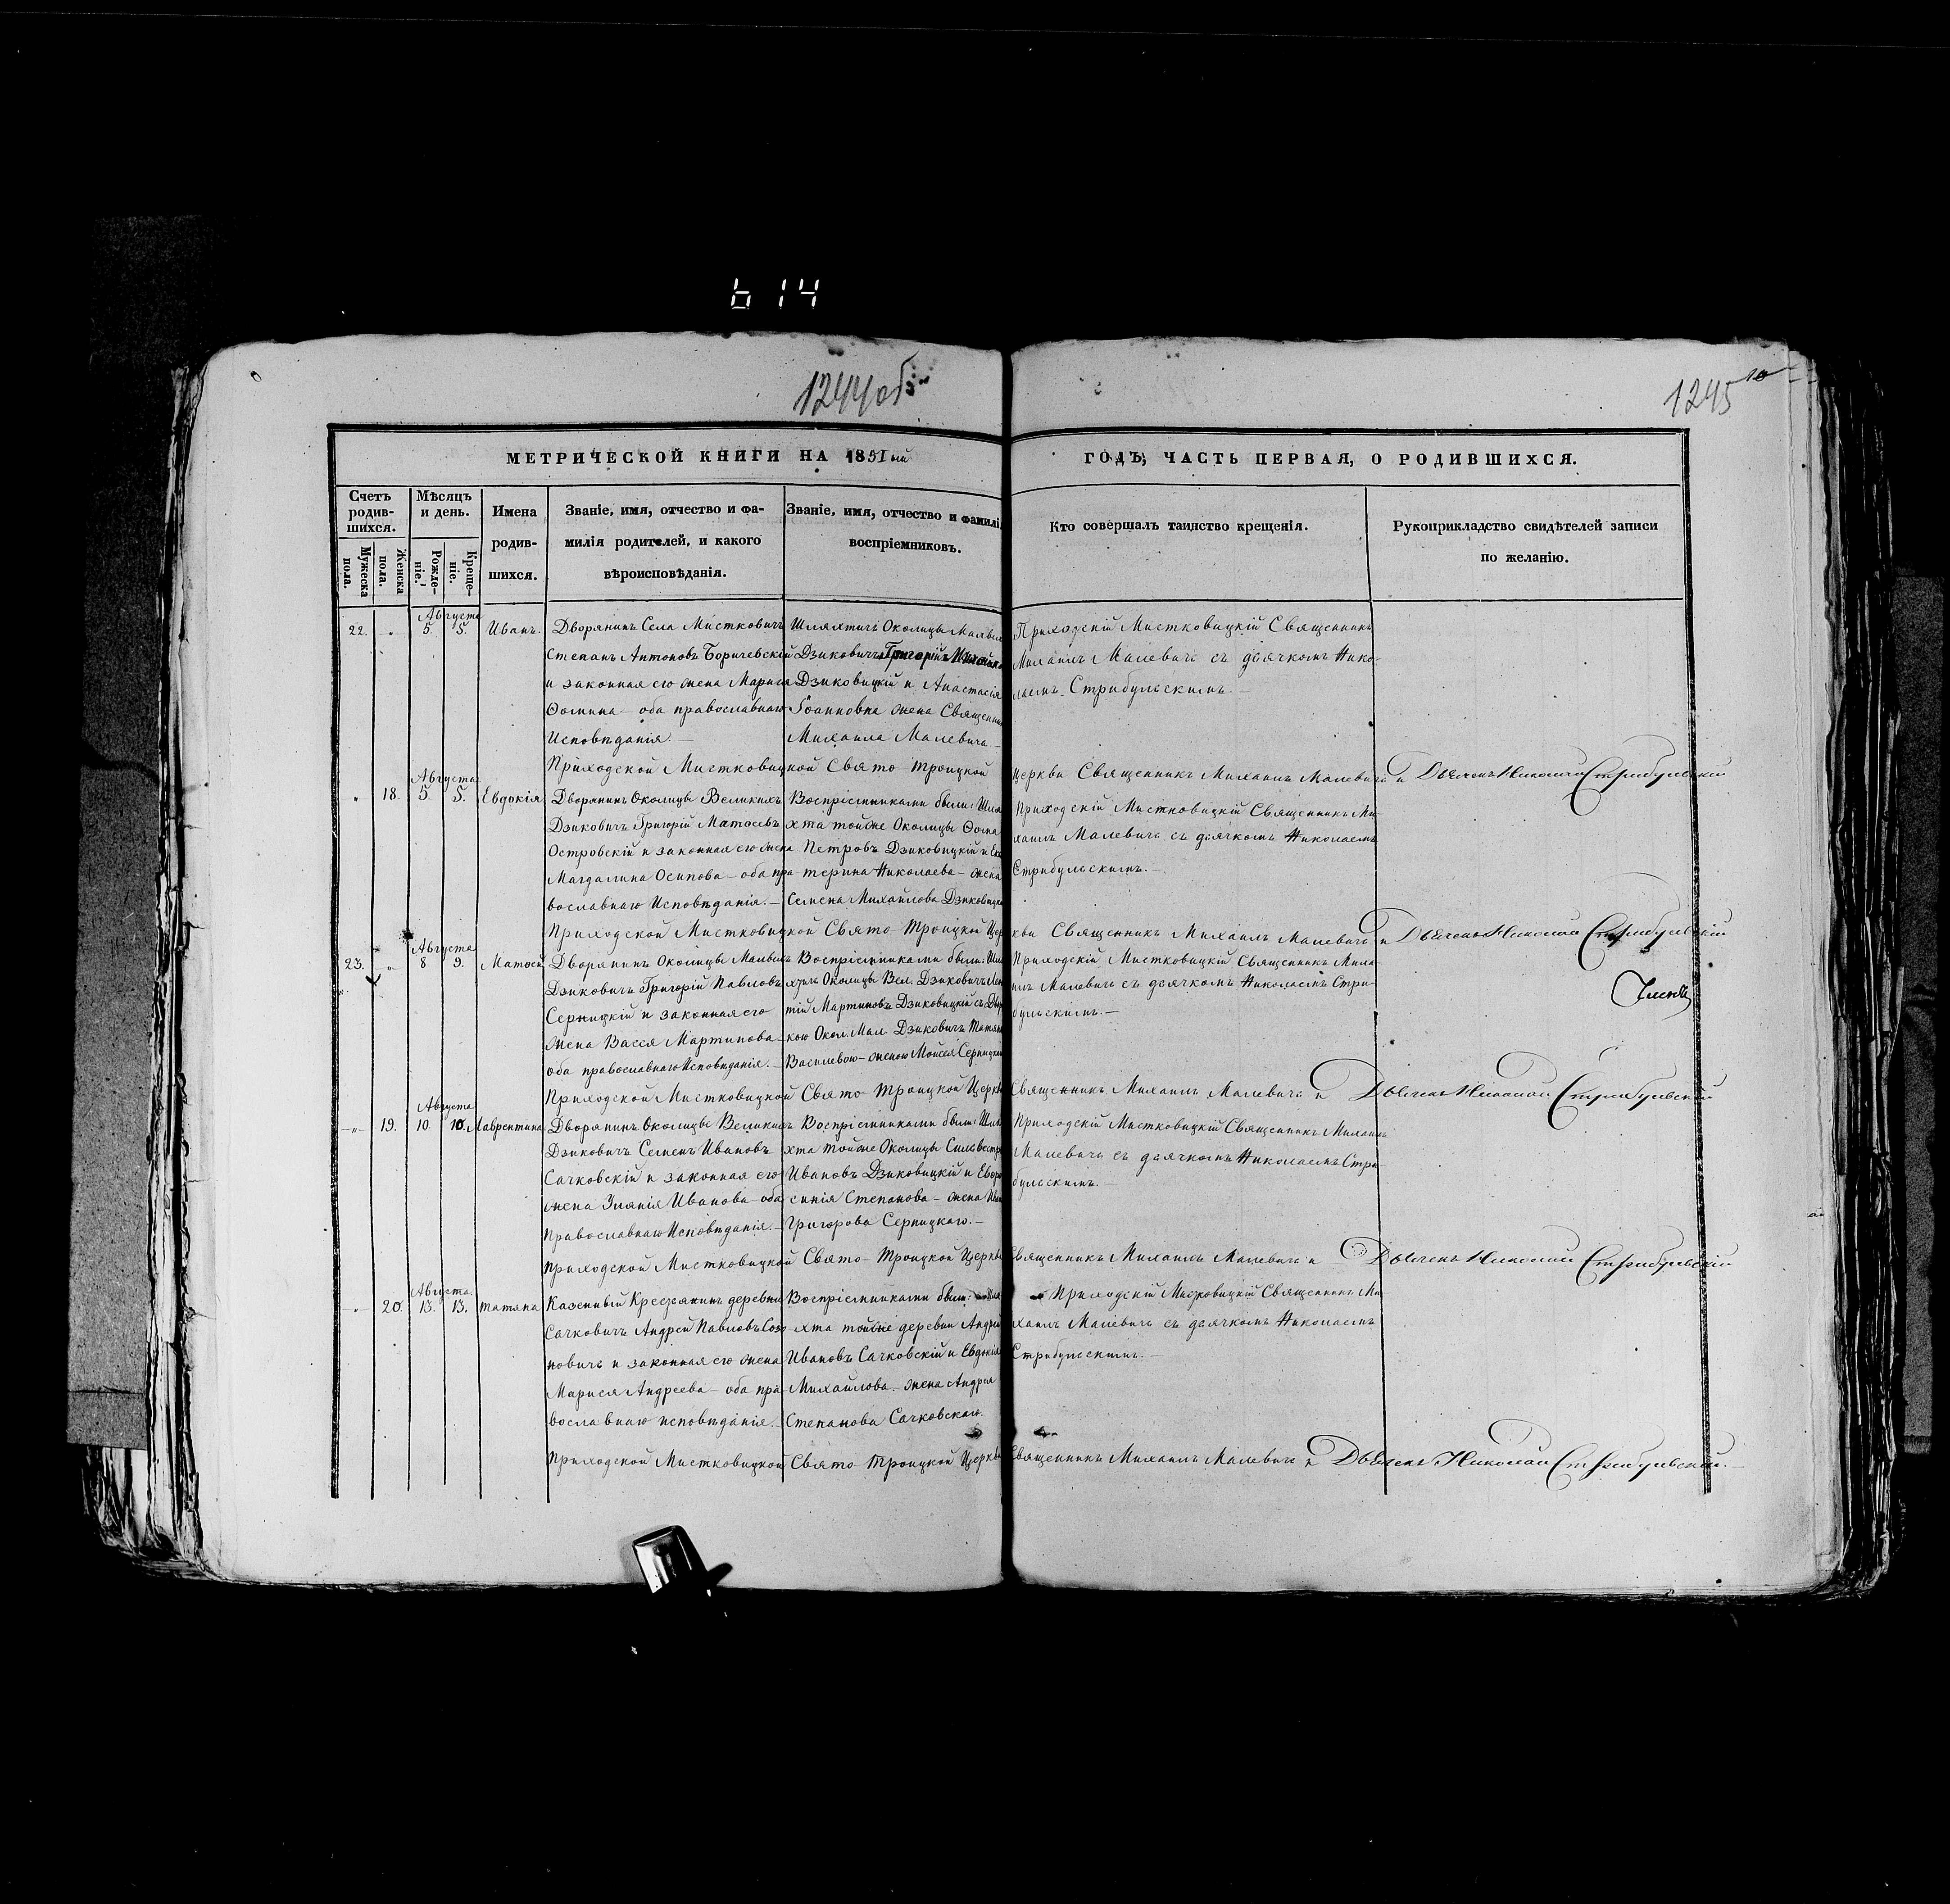 614
1244об
1245
10
МЕТРИЧЕСКОЙ КНИГИ НА 1851ый
ГОДЪ, ЧАСТЬ ПЕРВАЯ, О РОДИВШИХСЯ.
Счетъ родив-шихся.
Мужеска пола.
Женска пола.
Мѣсяцъ и день.
Рожде-ніе.
Креще-ніе.
Имена родив-шихся.
Званіе, имя, отчество и фа-
милія родителей, и какого
вѣроисповѣданія.
Званіе, имя, отчество и фамилі
воспріемниковъ.
Кто совершалъ таинство крещенія.
Рукоприкладство свидѣтелей записи
по желанію.
22. Августа 5. 5. Иванъ.
Дворянинъ Села Мистковичъ
Степанъ Антоновъ Боричевскій
и законная его жена Марися
Ѳомина – оба православнаго
Исповѣданія. –
Шляхтичъ Околицы Малых
Дзиковичъ Григорій
Дзиковицкій и Анастасія
Іоанновна жена Священни
Михаила Малевича –
Приходскій Мистковицкій Священникъ
Михаилъ Малевичъ съ дьячкомъ Нико-
лаемъ Стрибульскимъ. –
Приходской Мистковицкой Свято Троицкой Церкви Священникъ Михаилъ Малевичъ и Дьячекъ Николай Стрибульскій
18. Августа 5. 5. Евдокія
Дворянинъ Околицы Великихъ
Дзиковичъ Григорій Матѳеевъ
Островскій и законная его жена
Магдалина Осипова – оба пра
вославнаго Исповѣданія. –
Воспріемниками были: Шля
хта тойже Околицы Ѳома
Петровъ Дзиковицкій и Ека
терина Николаева – жена
Семена Михайлова Дзиковицка
Приходскій Мистковицкій Священникъ Ми
хаилъ Малевичъ съ дьячкомъ Николаемъ
Стрибульскимъ. –
Приходской Мистковицкой Свято Троицкой Церкви Священникъ Михаилъ Малевичъ и Дьячекъ Николай Стрибульскій
23. Августа 8 9. Матѳей
Дворянинъ Околицы Малыхъ
Дзиковичъ Григорій Павловъ
Серницкій и законная его
жена Васся Мартинова
оба православнаго Исповѣданія. –
Воспріемниками были: Шля
хтъ Околицы Вел. Дзиковичъ
тій Мартиновъ Дзиковицкій съ
кою Окол. Мал Дзиковичъ Татян
Василевою – женою Моисея Серницка
Приходскій Мистковицкій Священникъ Миха
илъ Малевичъ съ дьячкомъ Николаемъ Стри-
бульскимъ. –
Приходской Мистковицкой Свято Троицкой Церкви Священникъ Михаилъ Малевичъ и Дьячекъ Николай Стрибульскій
19. Августа 10. 10. Лаврентина
Дворянинъ Околицы Великихъ
Дзиковичъ Семенъ Ивановъ
Сачковскій и законная его
жена Улянія Иванова – оба
Православнаго Исповѣданія. –
Воспріемниками были: Шля
хта тойже Околицы Сильвестръ
Ивановъ Дзиковицкій и Евфро
синія Степанова – жена
Григорова Серницкаго. –
Приходскій Мистковицкій Священникъ Михаилъ
Малевичъ съ дьячкомъ Николаемъ Стри
бульскимъ. –
Приходской Мистковицкой Свято – Троицкой Церкви Священникъ Михаилъ Малевичъ и Дьячекъ Николай Стрибульскій
20. Августа 13. 13. Татяна
Казенный Крестьянинъ деревни
Сачковичъ Андрей Павловъ
новичъ и законная его жена
Марися Андреева – оба пра
вославнаго исповѣданія. –
Воспріемниками были: Шля
хта тойже деревни Андрей
Ивановъ Сачковскій и Евдокія
Михайлова – жена Андрея
Степанова Сачковскаго.
Приходскій Мистковицкій Священникъ Ми-
хаилъ Малевичъ съ дьячкомъ Николаемъ
Стрибульскимъ. –
Приходской Мистковицкой Свято Троицкой Церкви Священникъ Михаилъ Малевичъ и Дьячекъ Николай Стрибульскій.